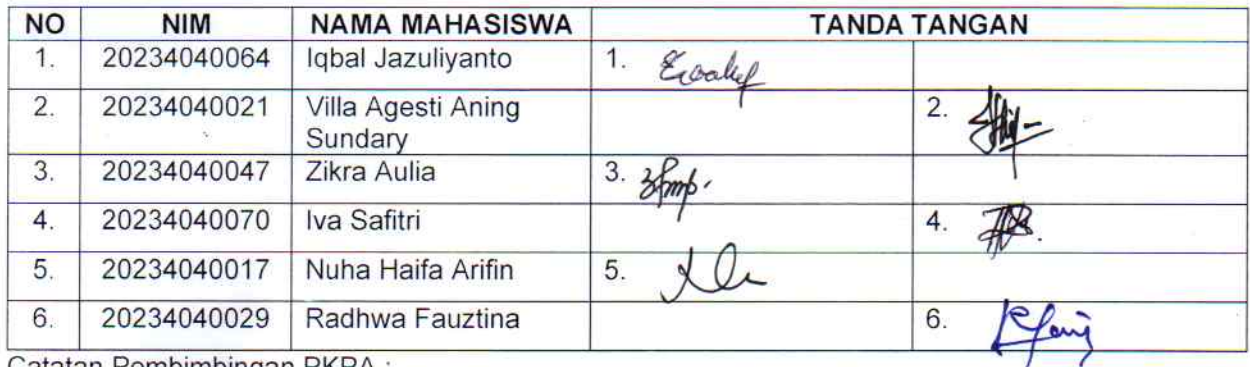 NO NIM NAMA MAHASISWA TANDA TANGAN
1. 20234040064 Iqbal Jazuliyanto 1.
2. 20234040021 Villa Agesti Aning 2.
Sundary
3. 20234040047 Zikra Aulia 3.
4. 20234040070 Iva Safitri 4.
5. 20234040017 Nuha Haifa Arifin 5.
6. 20234040029 Radhwa Fauztina 6.
Catatan Pembimbingan PKPA :